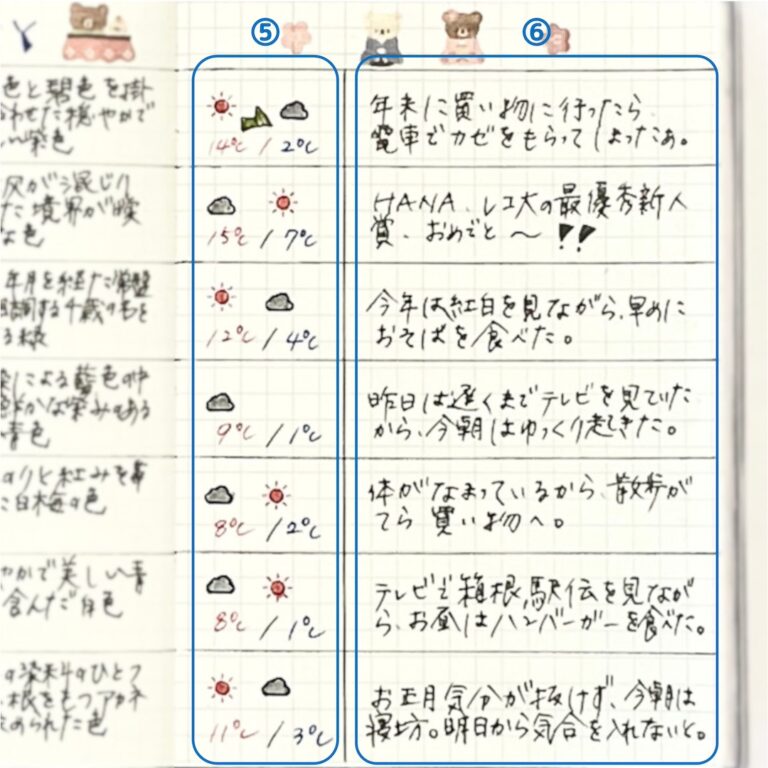 ⑤
⑥
色と碧色を掛
わせた穏やかで
い紫色
14℃ / 2℃
年末に買い物に行ったら、
電車でカゼをもらってしまったぁ。
灰が混じり
た境界が曖
な色
15℃ / 7℃
HANA、レコ大の最優秀新人
賞、おめでと〜!!
年月を経た常盤
する千歳の
る緑
12℃ / 4℃
今年は紅白を見ながら、早めに
おそばを食べた。
による藍色の中
かな染みのある
青色
9℃ / 1℃
昨日は遅くまでテレビを見ていた
から、今朝はゆっくり起きた。
のりと紅みを帯
白梅の色
8℃ / 2℃
体がなまっているから、散歩が
てら買い物へ。
やかで美しい青
含んだ白色
8℃ / 1℃
テレビで箱根駅伝を見なが
ら、お昼はハンバーガーを食べた。
の染料のひとつ
根をもつアカネ
められた色
11℃ / 3℃
お正月気分が抜けず、今朝は
寝坊。明日から気合を入れないと。